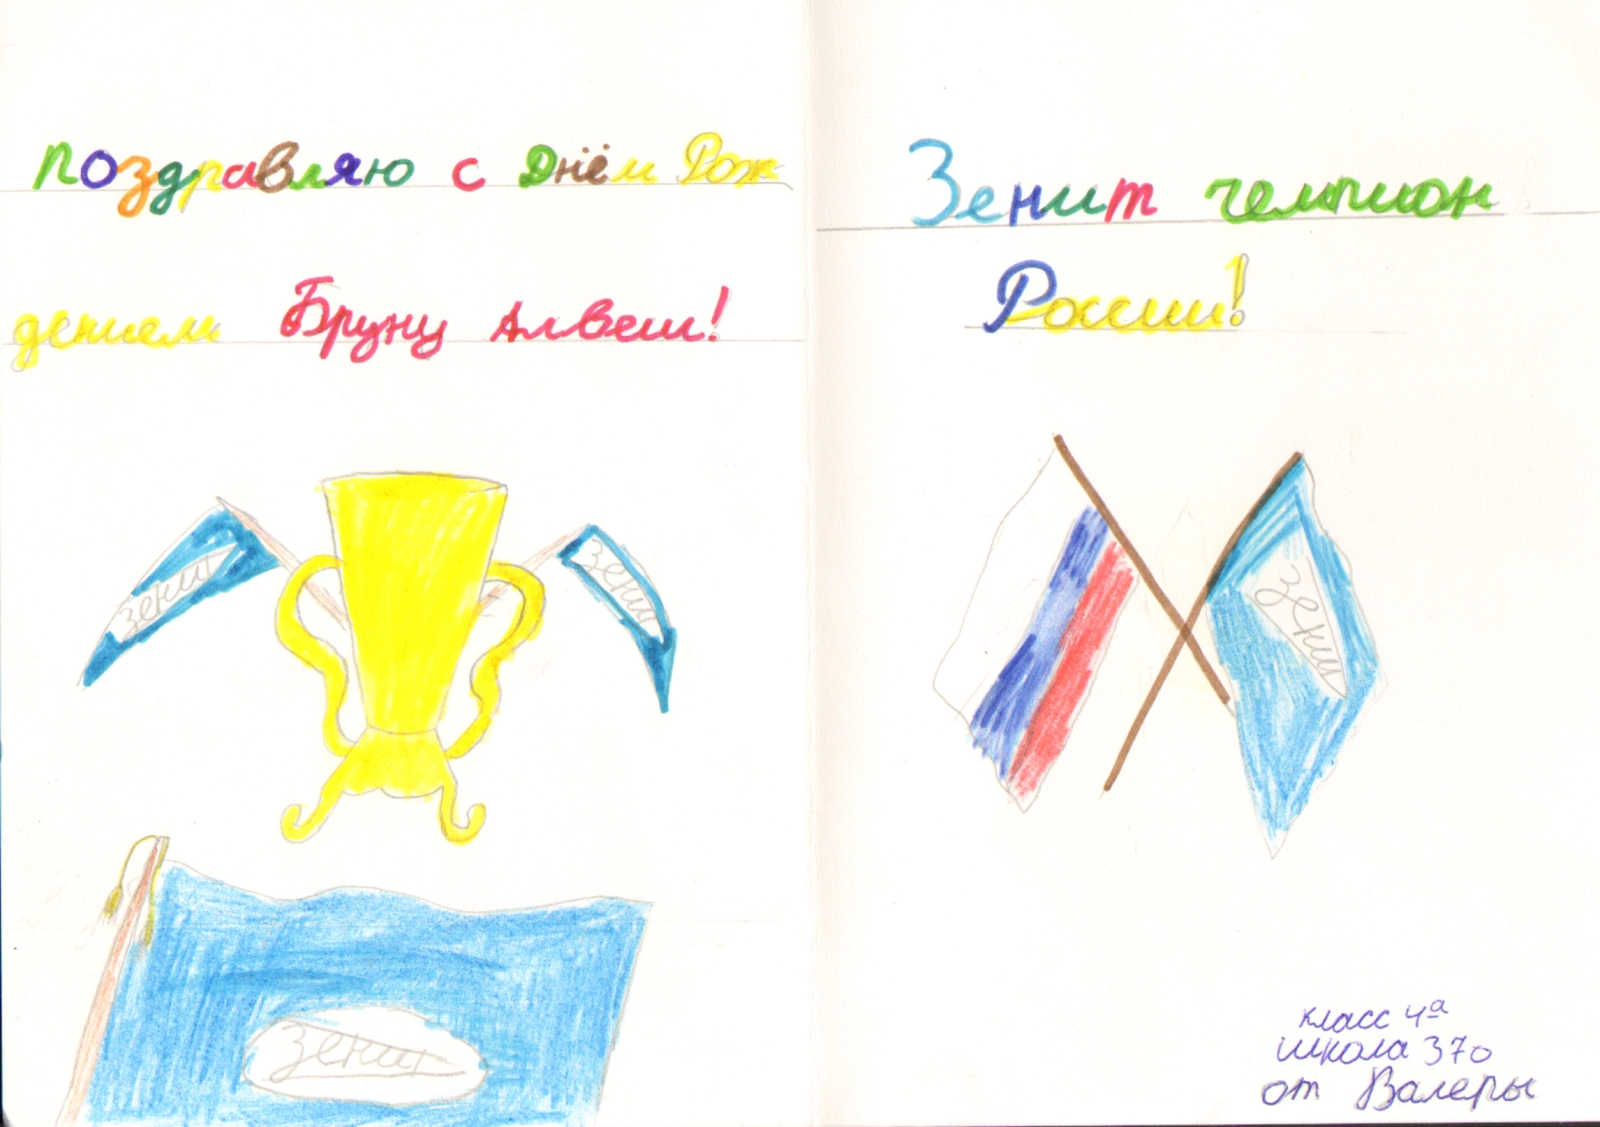 Поздравляю с Днём Рож
дением Бруну Алвеш!
зенит
зенит
зенит
Зенит чемпион
России!
зенит
класс 4а
школа 370
от Валеры